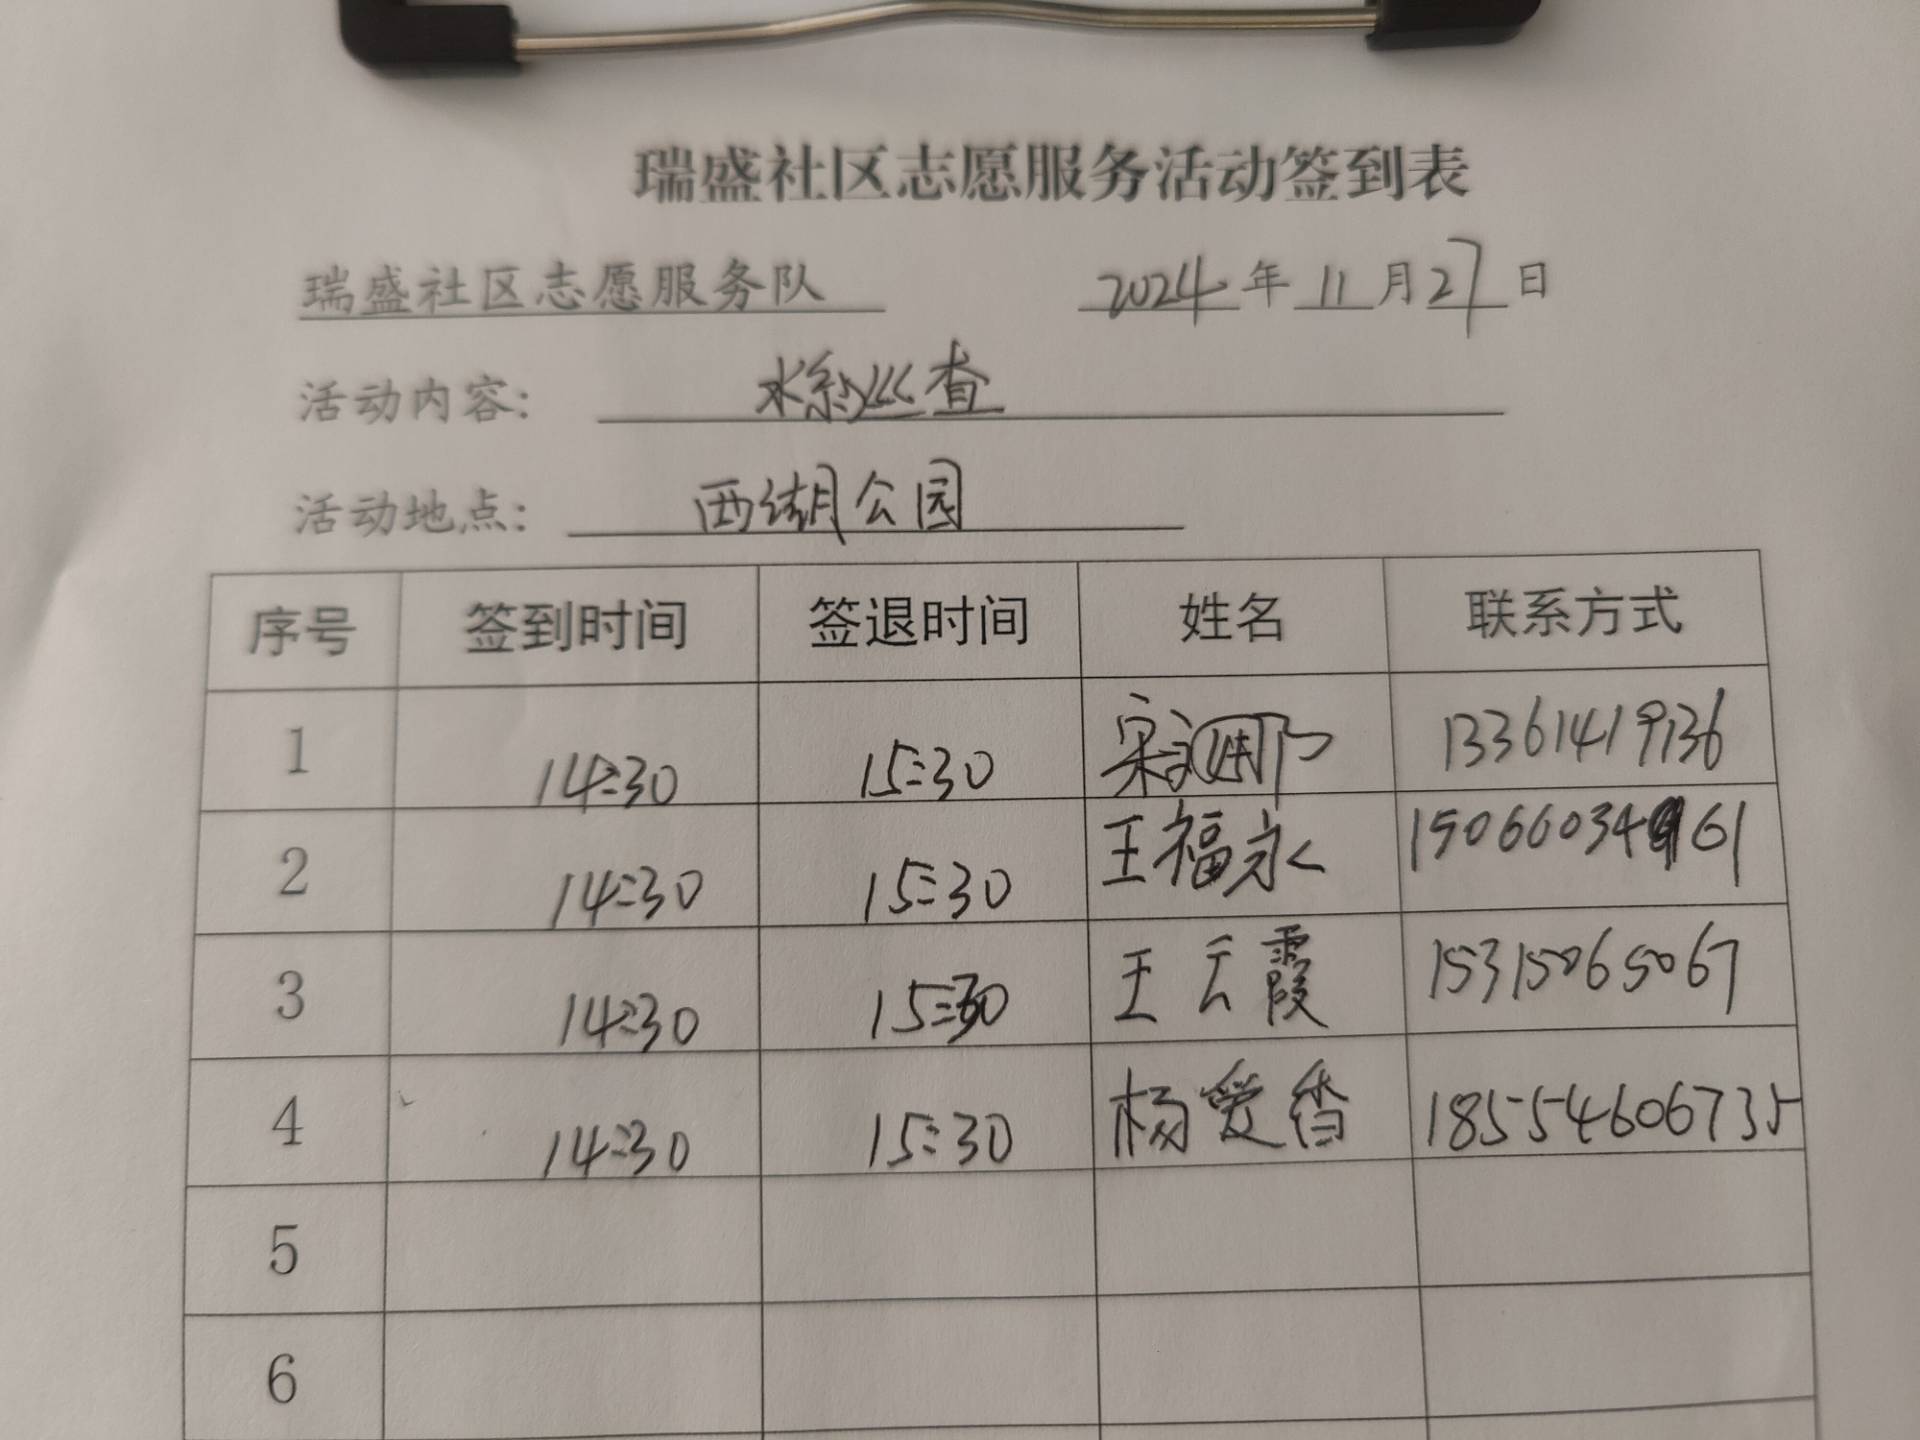 瑞盛社区志愿服务活动签到表
瑞盛社区志愿服务队 2024年11月27日
活动内容: 水系巡查
活动地点: 西湖公园
序号 签到时间 签退时间 姓名 联系方式
1 14:30 15:30 宋 13361419136
2 14:30 15:30 王福永
3 14:30 15:30 王云霞 15315065067
4 14:30 15:30 杨爱香 18554606735
5
6